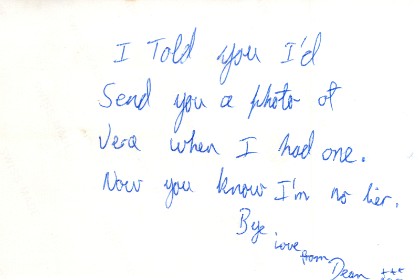 I Told you I'd
Send you a photo of
Vera when I had one.
Now you know I'm no lier.
Bye
love
from
Dean